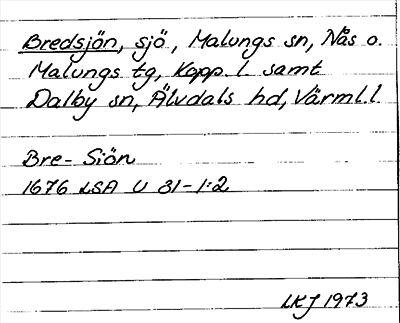 Bredsjön, sjö, Malungs sn, Nås o.
Malungs tg, Kopp. l. samt
Dalby sn, Älvdals hd, Värml. l.
Bre- Siön
1676 LSA U 31-1:2
LKJ 1973